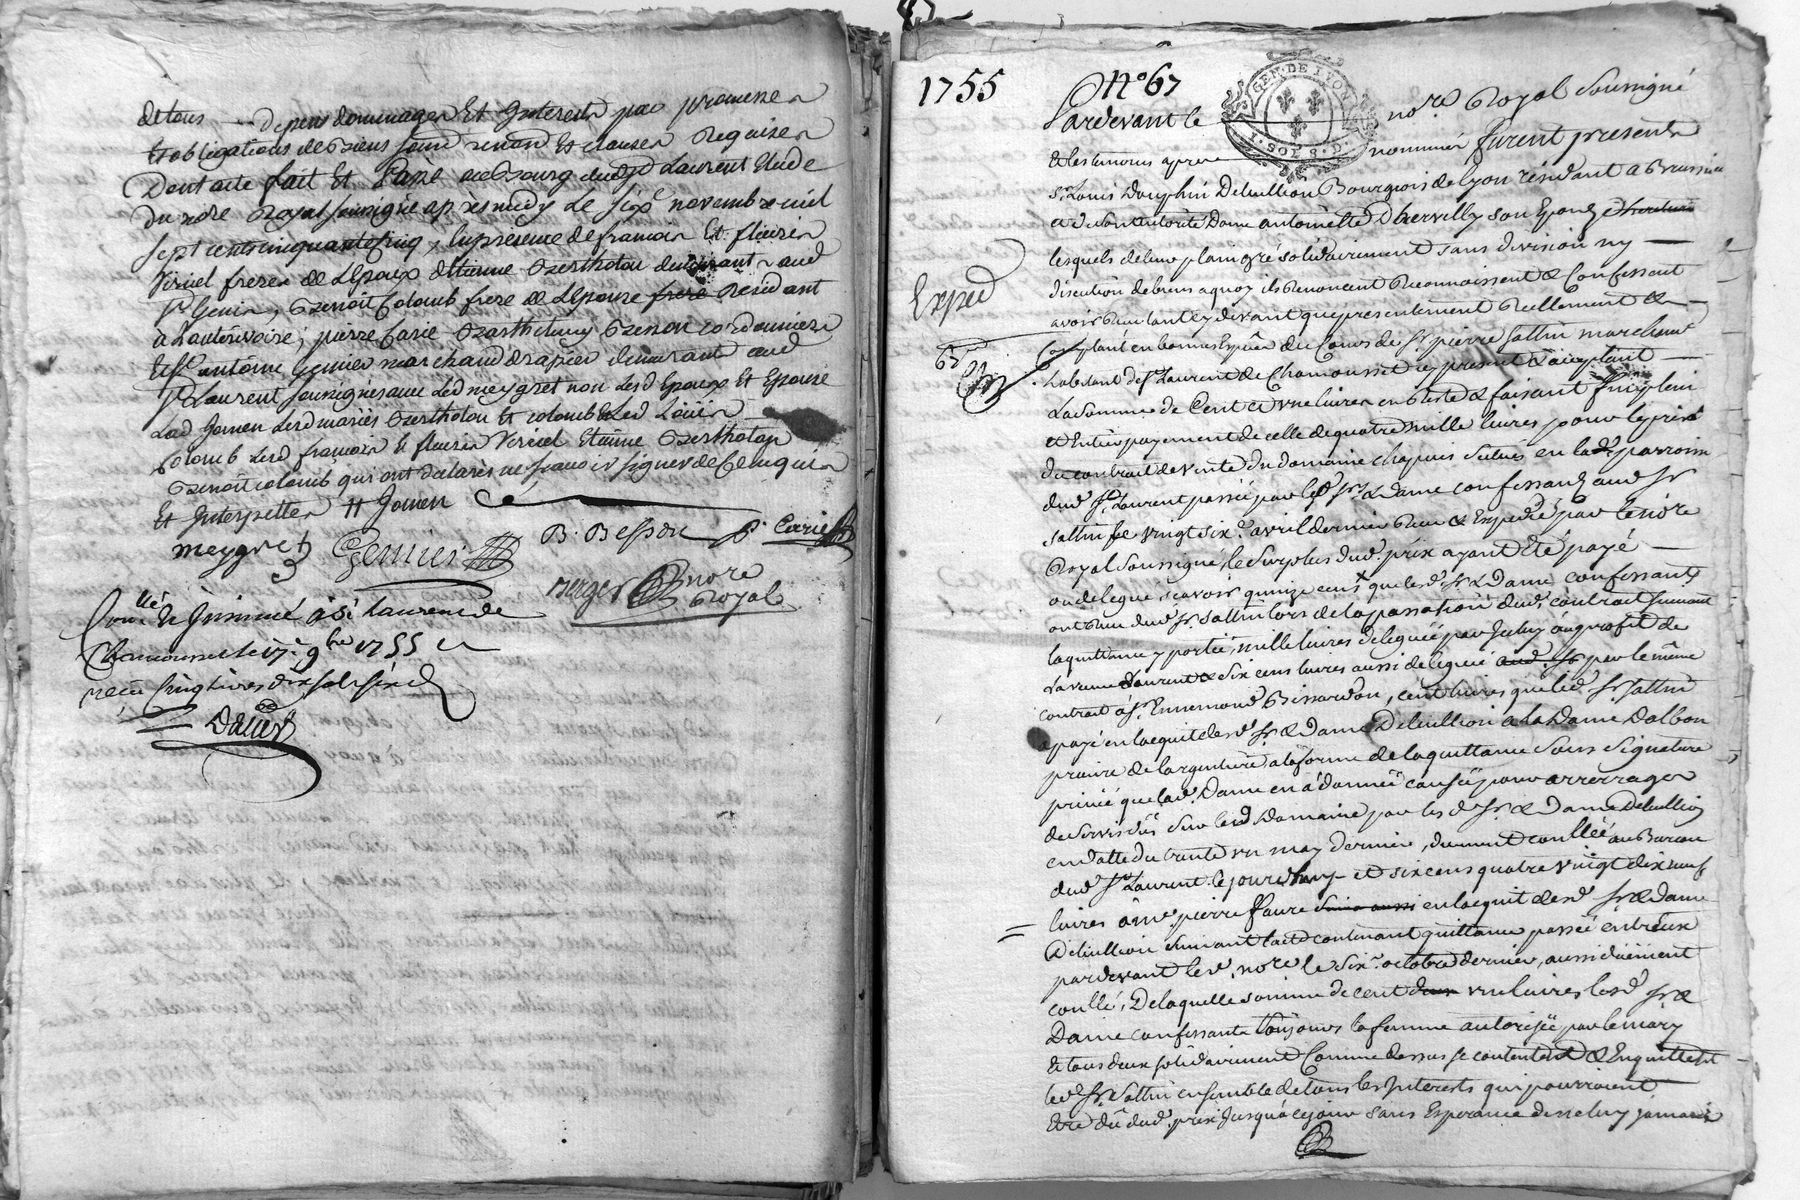 de tous depens dommages Et Interest par promesses
Et obligations de biens soum renon Et clauses Requises
Dont acte fait Et Passé au Bourg dudt St Laurent Etude
du nore Royal soussigné apres midy Le sixe novembre mil
sept cents cinquante Cinq, En presence de francois Et fleurie
Viricel freres de L'Epoux Etienne Bertholon demeurant aud
St Genis, Benoit Colomb frere de L'Epouse frere Residant
à hauterivoire; pierre Carié Barthelmy Besson cordonniers
Et Sr antoine Gemier marchand drapier demeurant aud
St Laurent soussignés avec Led meygret non Lesd Epoux Et Epouse
Lad Gonen Lesd mariés Bertholon Et colomb Led Loüis
Colomb Lesd francois Et fleurie Viricel Etienne Bertholon
Benoit colomb qui ont declarés ne sçavoir signer de Ce enquis
Et Interpellés // Gonen
meygret Gemier B. Besson P. Carié
Berger nore
Royal
Conllé & Insinué à St Laurent de
Chamousset le 17e 9bre 1755
recu Cinq livres dix sols six d
Dalier
1755
N° 67
GEN. DE LYON
SOLS. D.
Pardevant le nore Royal Soussigné
Et les temoins apres nommés furent presents
Sr Louis Dauphin Delullion Bourgeois de Lyon résidant a Brussieu
et de son autorité Dame antoinette Dhervilly son Epouze
lesquels de leur plain gré solidairement sans division ny
discution de biens a quoy ils Renoncent Reconnoissent & Confessent
avoir Reçu tant cy devant que presentement Reellement &
Comptant en bonnes Espèces du Cours de Sr pierre Sattin marchand
habitant de St Laurent de Chamousset icy present & acceptant
La Somme de Cent et une livres en Reste & faisant final plein
et Entier payement de celle de quatre mille livres pour le prix
du contrait de vente du domaine chapuis Situés en lade parroisse
dud St Laurent passée par lesd Sr & Dame confessants aud Sr
Sattin le vingt sixe avril dernier Reçu & Expedié par le nore
Royal Soussigné, le Surplus dud prix ayant Eté payé
ou delegué scavoir quinze cens que lesd Sr & Dame confessants
ont Reçu dud Sr Sattin lors de la passation dud contrait suivant
la quittance y portée, mille livres deleguée par Iceluy au profit de
la veuve Laurent & Six cens livres aussi delegué aud Sr par le même
contrait à Sr Ennemond Bissardon, cent livres que led Sr Sattin
a payé en lacquit desd Sr & Dame Delullion à La Dame Dalbon
prieure de largentiere a la forme de la quittance Sous Signature
privée que lad Dame en a donnée causée pour arrerrages
de servis dûs Sur led Domaine par les d Sr & Dame Delullion
en datte du trente un may dernier, duement conllée au Bureau
dud St Laurent le jourdhuy et six cens quatre vingt dix neuf
livres a me pierre ffaure en lacquit desd Sr & Dame
Delullion suivant lacte contenant quittance passée entreux
pardevant led nore le six octobre dernier, aussi duëment
conllé, De laquelle somme de cent une livres lesd Sr &
Dame confessants toujours la femme autorisée par le mary
Et tous deux solidairement Comme dessus se contentent & En quittent
led Sr Sattin ensemble de tous les Interests qui pourroient
Etre dû dud prix Jusqua ce jour sans Esperance den Reluy jamais
Exped